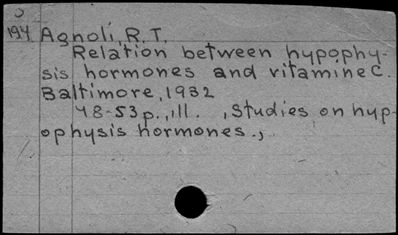 194 Agnoli, R.T.
Relation between hypophy-
sis hormones and vitamine C.
Baltimore, 1932
48-53p., ill. , Studies on hyp-
ophysis hormones.,